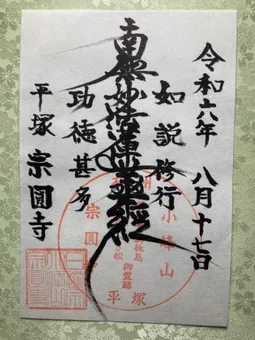 令和六年 八月十七日
如説修行
南無妙法蓮華経
功徳甚多
平塚 宗圓寺
小峯山
宗圓
御霊跡
平塚